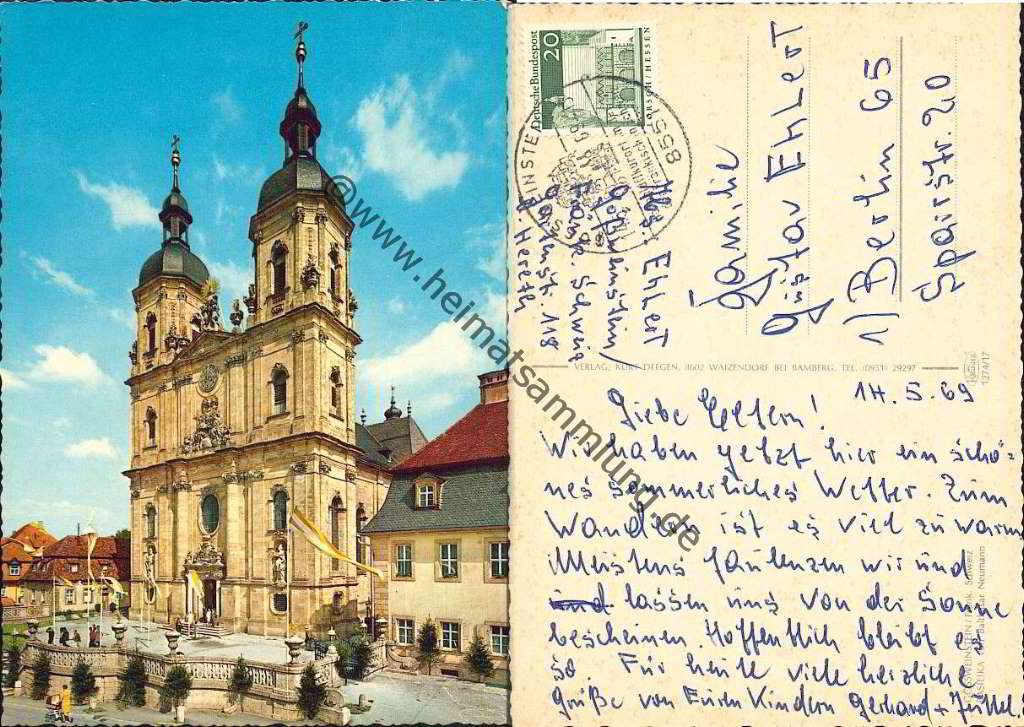 ©www.heimatsammlung.de
Deutsche Bundespost
20
LORSCH/HESSEN
855
Familie
Gustav Ehlert
1) Berlin 65
Sparrstr. 20
Abs. Ehlert
Gößweinstein/
Fränk. Schweiz
118
b. Hereth
VERLAG, KURT DEEGEN, 8602 WAIZENDORF BEI BAMBERG, TEL. (0931) 29297
1274/17
14.5.69
Liebe Eltern!
Wir haben jetzt hier ein schö=
nes sommerliches Wetter. Zum
Wandern ist es viel zu warm
Meistens faulenzen wir und
und lassen uns von der Sonne
bescheinen. Hoffentlich bleibt es
so Für heute viele herzliche
Grüße von Euren Kindern Gerhard +